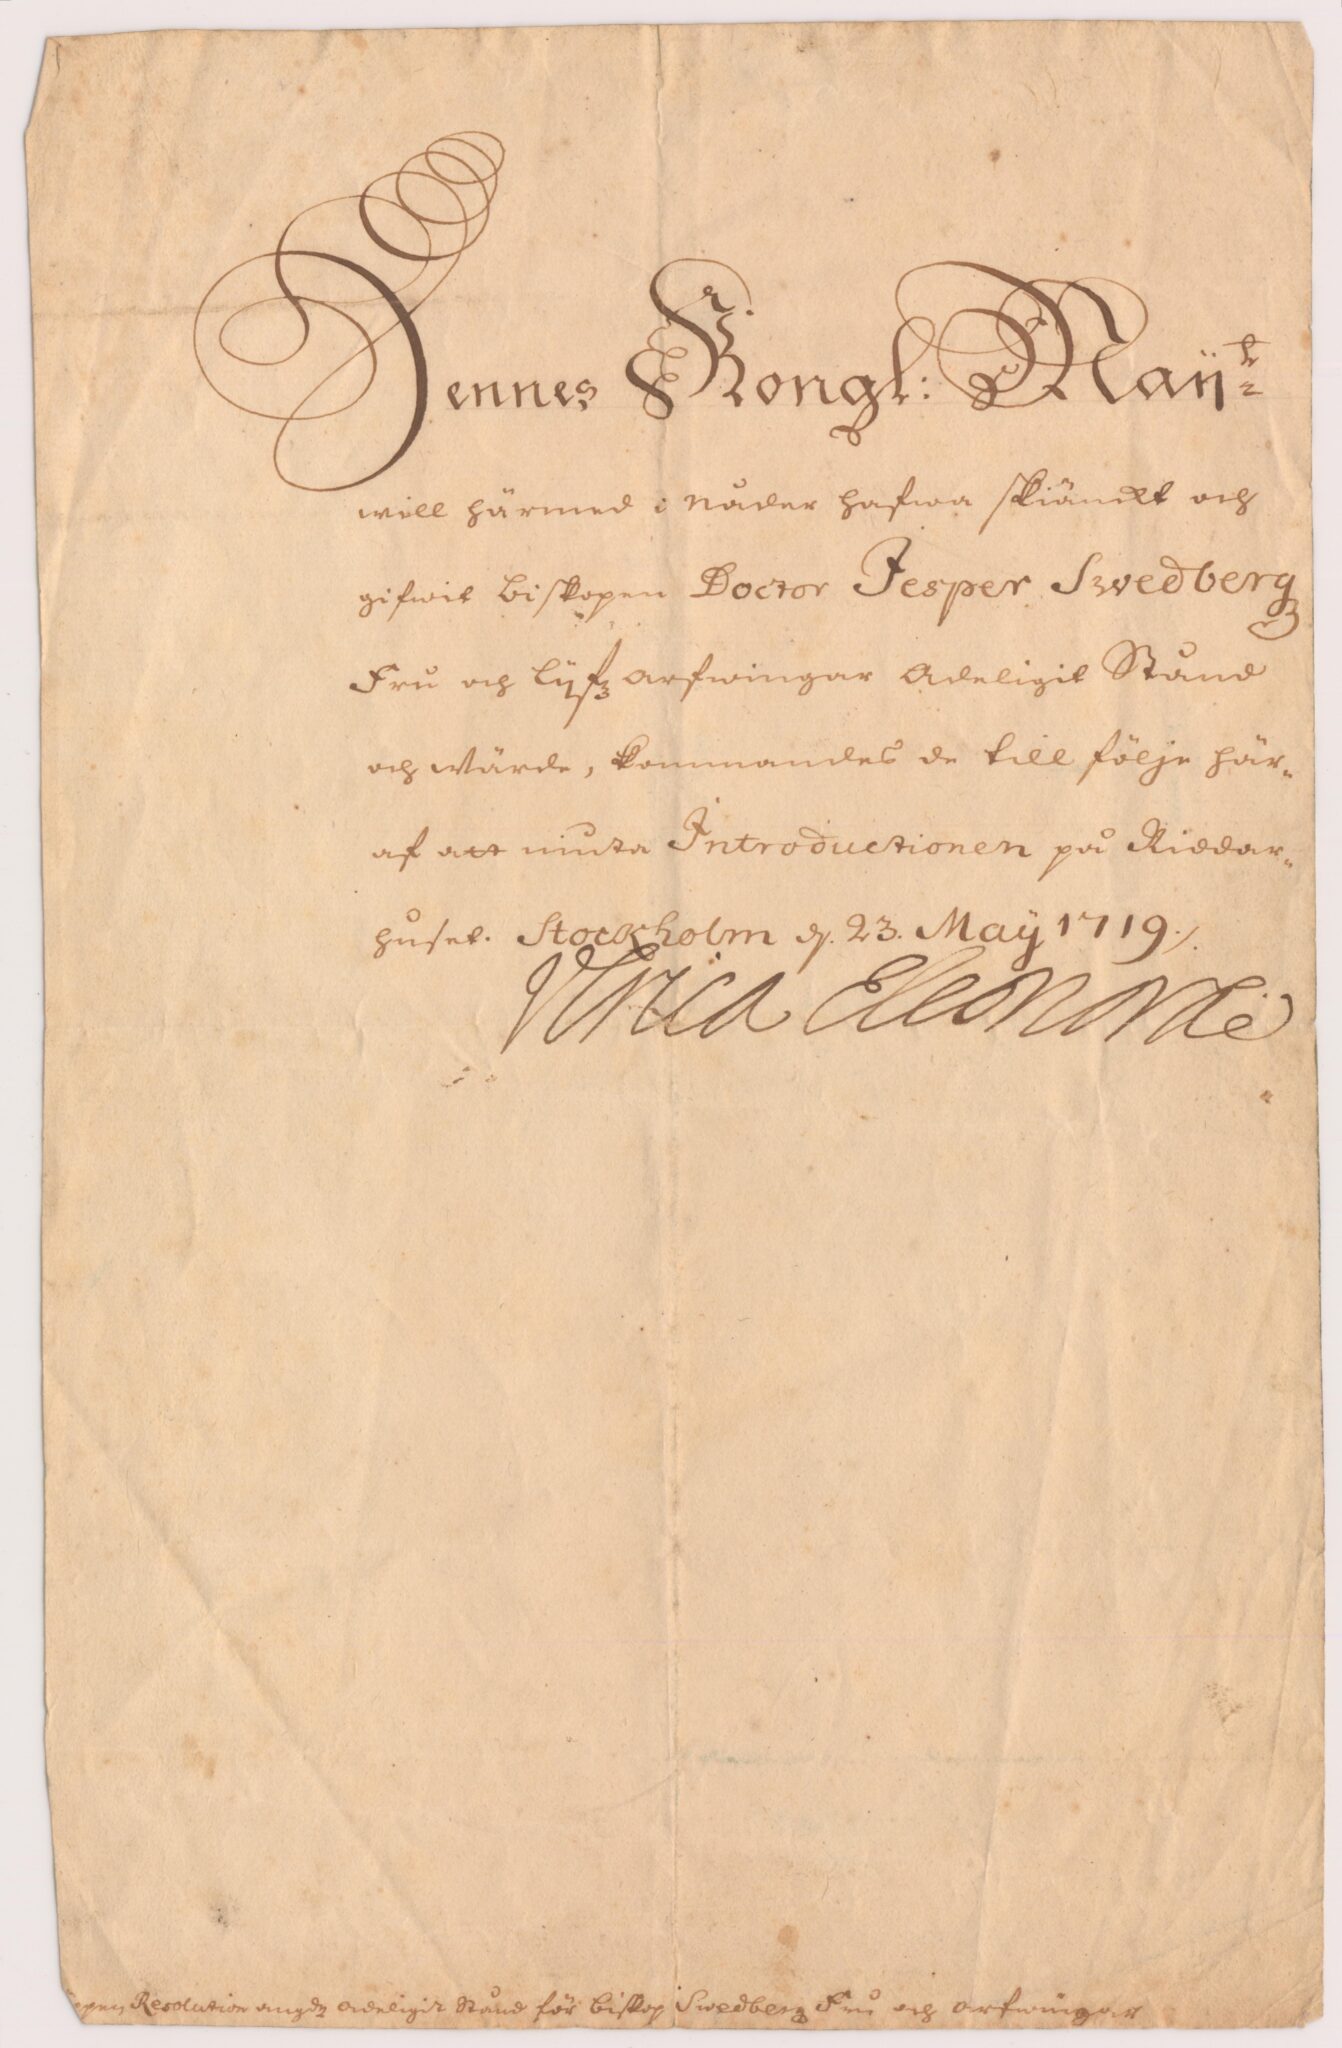 Hennes Kongl: Maÿ:tt
will härmed i Nåder hafwa skiänckt och
gifwit Biskopen Doctor Jesper Swedberg
Fru och Lijfz arfwingar Adeligit Stånd
och Wärde, kommandes de till följe här-
af att niuta Introductionen på Riddar-
huset. Stockholm d. 23. Maÿ 1719.
Vlrica Eleonora
open Resolution angde Adeligit Stånd för Biskop Swedbergz Fru och arfwingar